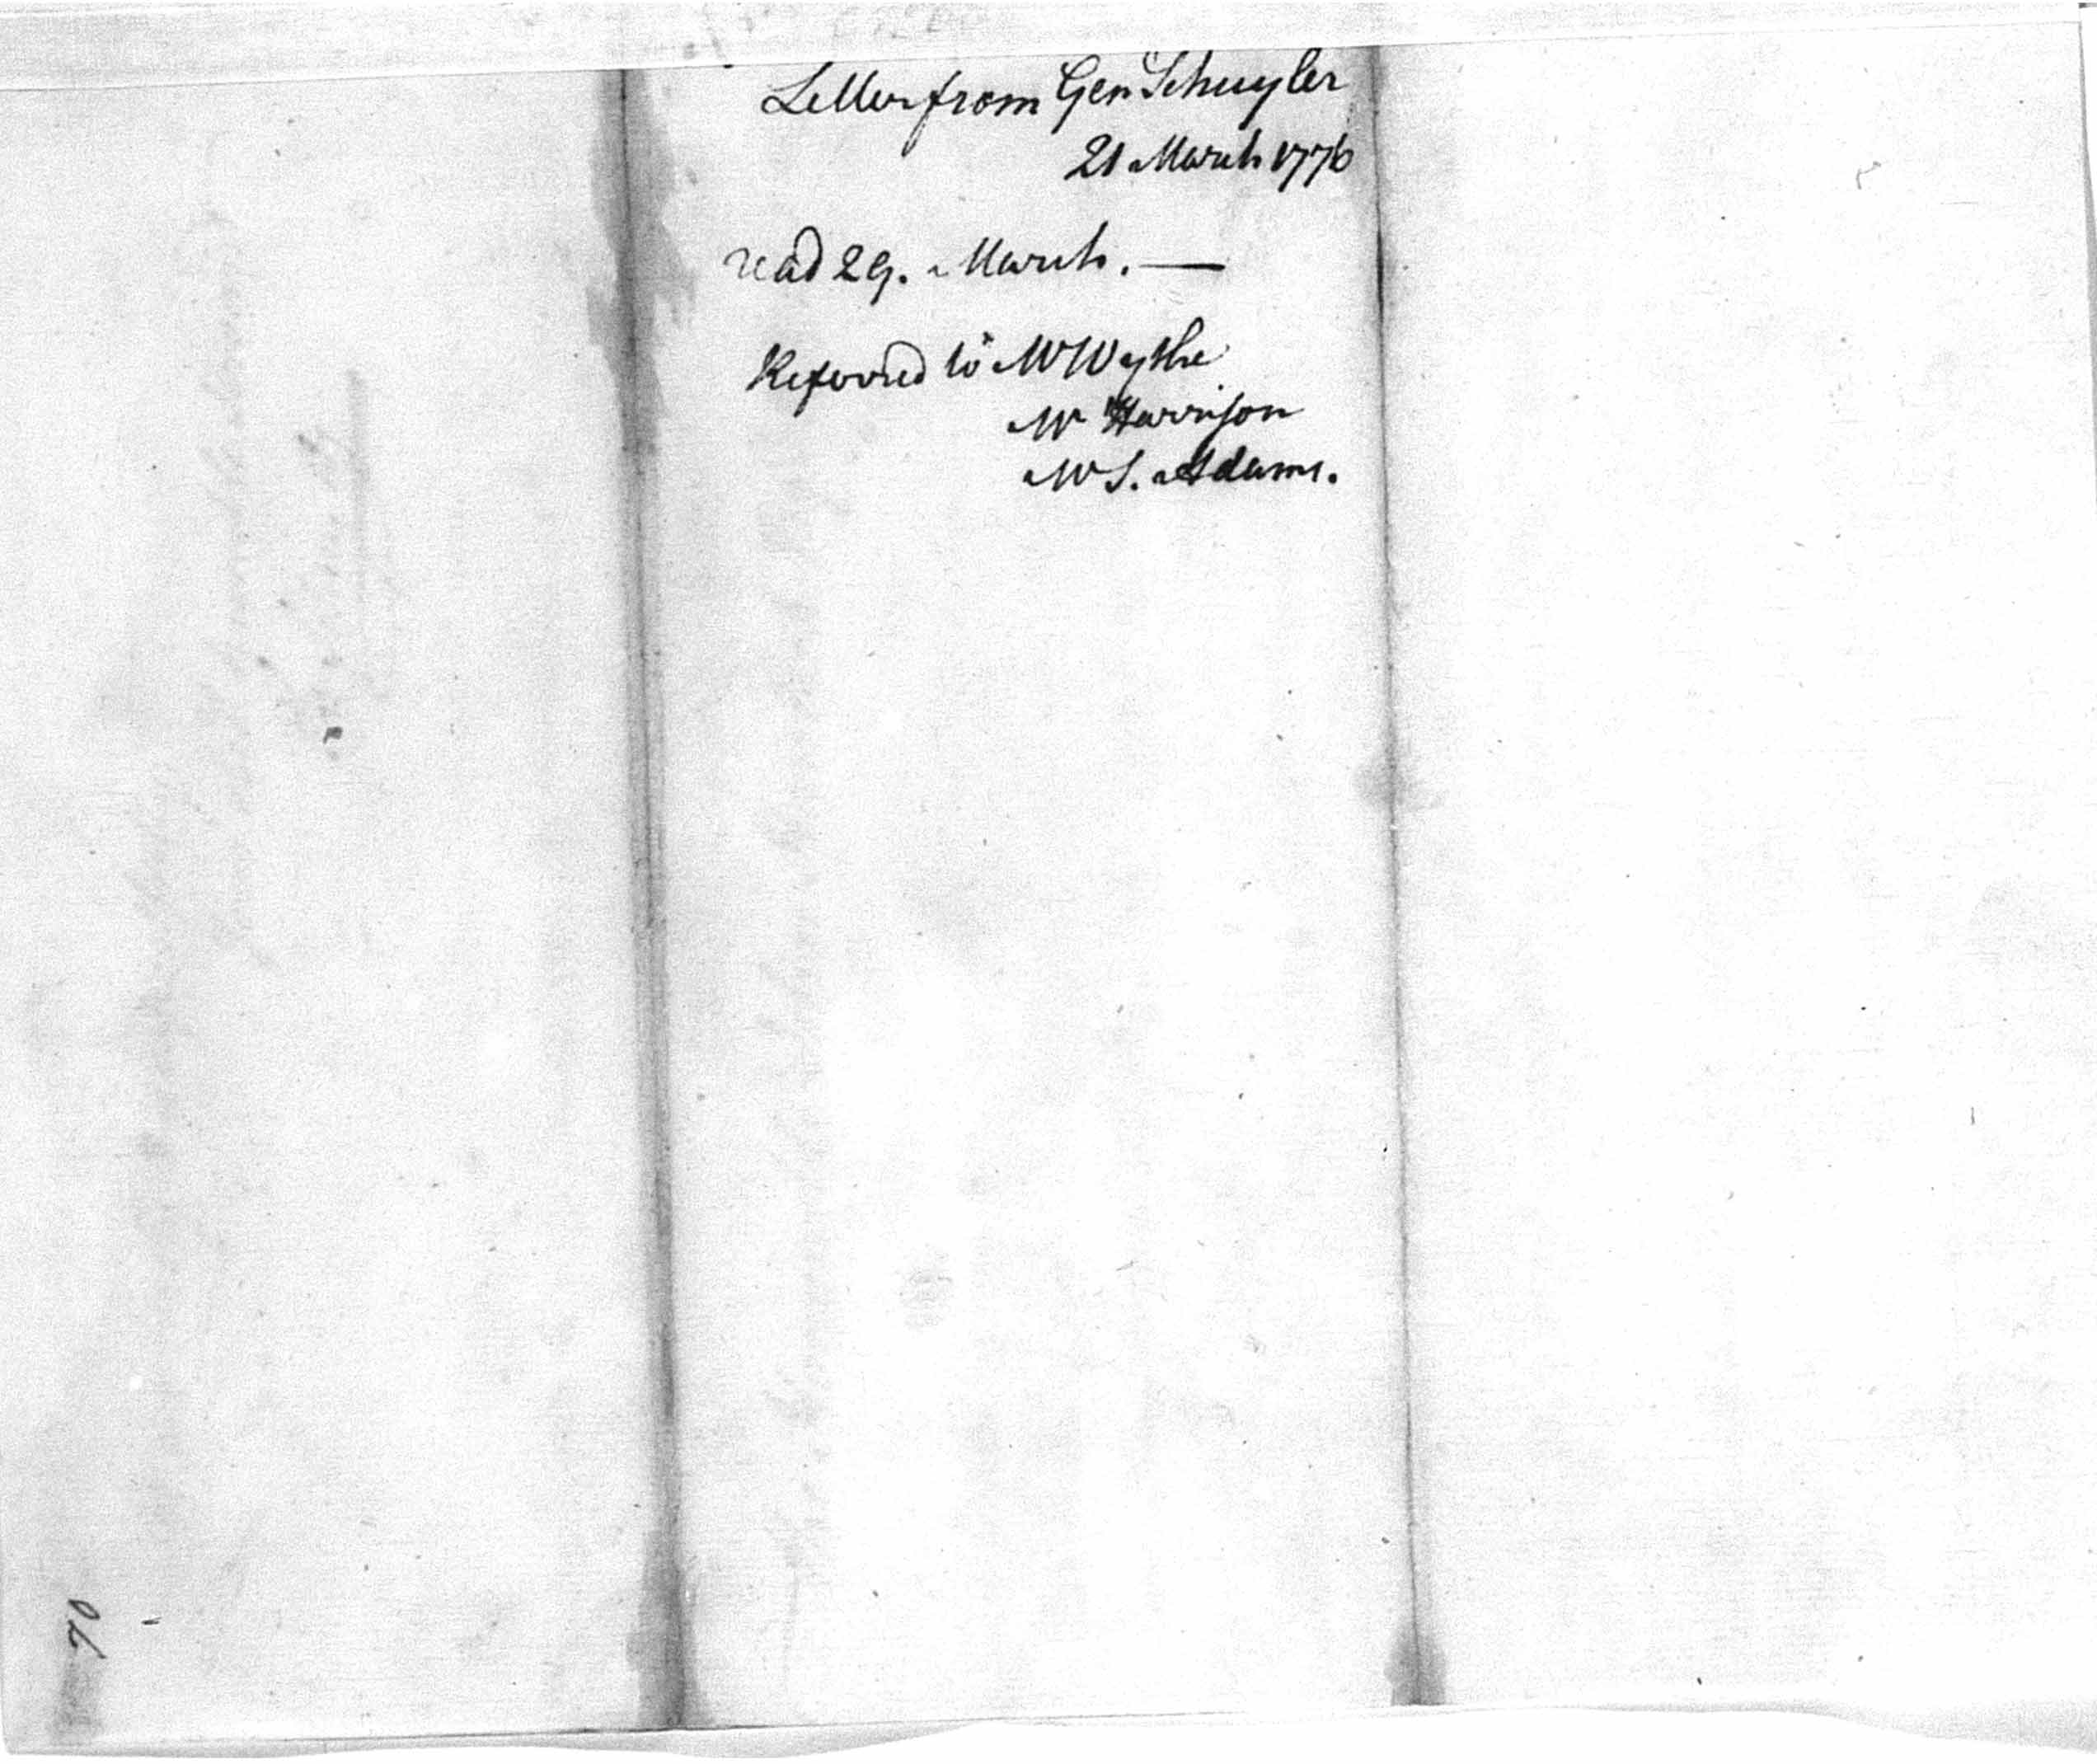 Letter from Gen Schuyler
21 March 1776
read 29. March. —
Referred to Mr Wythe
Mr Harrison
Mr S. Adams.
70